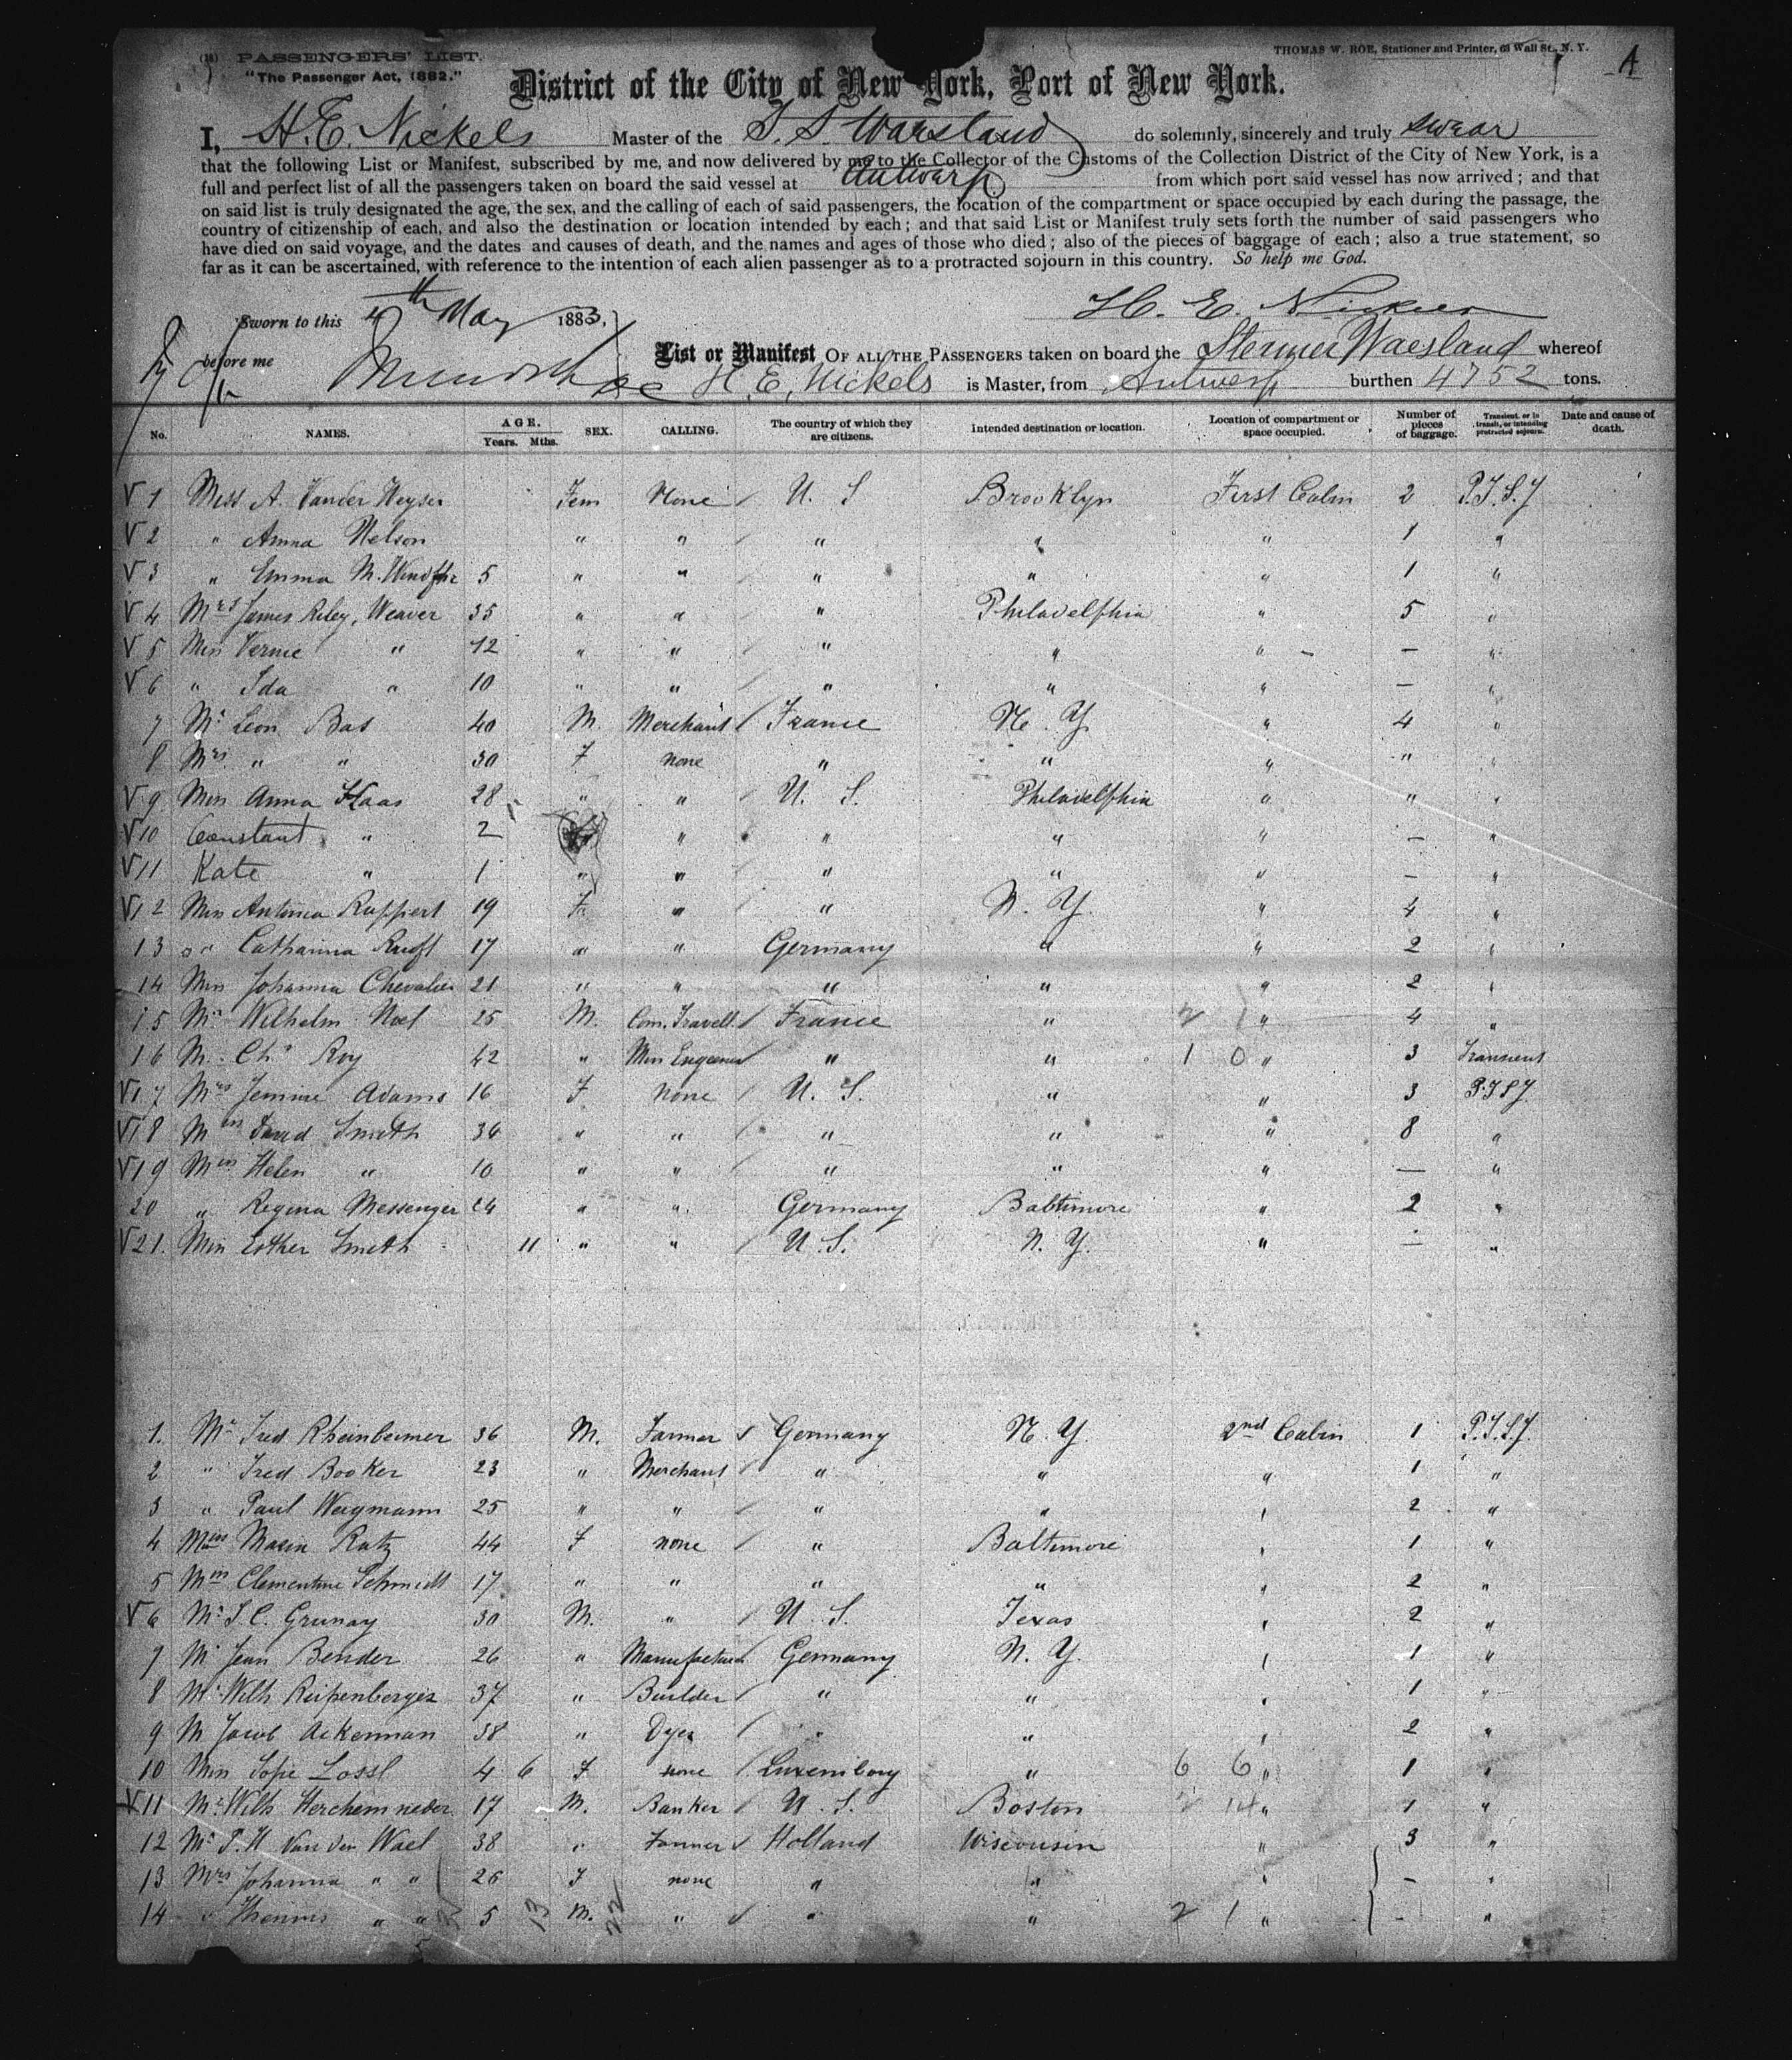 (18) PASSENGERS' LIST.
THOMAS W. ROE, Stationer and Printer, 63 Wall St., N. Y.
A
"The Passenger Act, 1882."
District of the City of New York, Port of New York.
I, H. E. Nickels Master of the S. S. Waesland do solemnly, sincerely and truly swear
that the following List or Manifest, subscribed by me, and now delivered by me to the Collector of the Customs of the Collection District of the City of New York, is a
full and perfect list of all the passengers taken on board the said vessel at Antwerp from which port said vessel has now arrived; and that
on said list is truly designated the age, the sex, and the calling of each of said passengers, the location of the compartment or space occupied by each during the passage, the
country of citizenship of each, and also the destination or location intended by each; and that said List or Manifest truly sets forth the number of said passengers who
have died on said voyage, and the dates and causes of death, and the names and ages of those who died; also of the pieces of baggage of each; also a true statement, so
far as it can be ascertained, with reference to the intention of each alien passenger as to a protracted sojourn in this country. So help me God.
Sworn to this 4th May 1883, H. E. Nickels
before me
List or Manifest OF ALL THE PASSENGERS taken on board the Steamer Waesland whereof
H. E. Nickels is Master, from Antwerp burthen 4752 tons.
No. NAMES. AGE. Years. Mths. SEX. CALLING. The country of which they are citizens. Intended destination or location. Location of compartment or space occupied. Number of pieces of baggage. Transient, or in transit, or intending protracted sojourn. Date and cause of death.
V 1 Miss A. Vander Heyser Fem None / U. S Brooklyn First Cabin 2 P.T.S.J
V 2 " Anna Nelson " " / " " " 1 "
V 3 " Emma M. 5 " " / " " " 1 "
V 4 Mrs James Riley, Weaver 35 " " " Philadelphia " 5 "
V 5 Miss Vernie " 12 " " / " " " — "
V 6 " Ida " 10 " " / " " " — "
7 Mr Leon Bas 40 M. Merchant / France N. Y. " 4 "
8 Mrs " " 30 F none " " " " "
V 9 Miss Anna Haas 28 " " / U. S. Philadelphia " " "
V 10 Constant " 2 " / " " " — "
V 11 Kate " 1 " " / " " " — "
V 12 Miss Antonia Ruppert 19 F " / " N. Y. " 4 "
13 " Catharina 17 " " Germany " " 2 "
14 Miss Johanna Chevalier 21 " " " " " 2 "
15 Mr Wilhelm Noel 25 M. Com. Travell / France " 2 1 " 4 "
16 Mr Chs Roy 42 " / " " 1 0 " 3 Transient
V 17 Mrs Jennie Adams 16 F none / U. S. " " 3 P.T.S.J.
V 18 Mrs David Smith 34 " " / " " " 8 "
V 19 Miss Helen " 10 " " / " " " — "
20 " Regina Messenger 24 " " Germany Baltimore " 2 "
V 21. Miss Esther Smith 11 " " / U. S. N. Y. " — "
1. Mr Fred Rheinbeimer 36 M. Farmer Germany N. Y. 2nd Cabin 1 P.T.S.J.
2 " Fred Booker 23 " Merchant / " " " 1 "
3 " Paul Wegmann 25 " " / " " " 2 "
4 Mrs Ratz 44 F none / " Baltimore " 1 "
5 Miss Clementine Schmidt 17 " " " " " 2 "
V 6 Mr Grunay 30 M. " / U. S. Texas " 2 "
7 Mr Jean Bender 26 " Manufacturer Germany N. Y. " 1 "
8 Mr Wilh 37 " Builder / " " " 1 "
9 M Jacob Ackerman 38 " Dyer / " " " 2 "
10 Miss Sofie Lossl 4 6 F none / Luxemburg " 6 6 " 1 "
V 11 Mr Wilh 17 M. Banker / U. S. Boston 2 14 " 1 "
12 Mr P. H Van der Wael 38 " Farmer Holland Wisconsin " 3 "
13 Mrs Johanna " " 26 F none " " " - "
14 " " " 5 13 M. 22 " " " 2 1 " - "